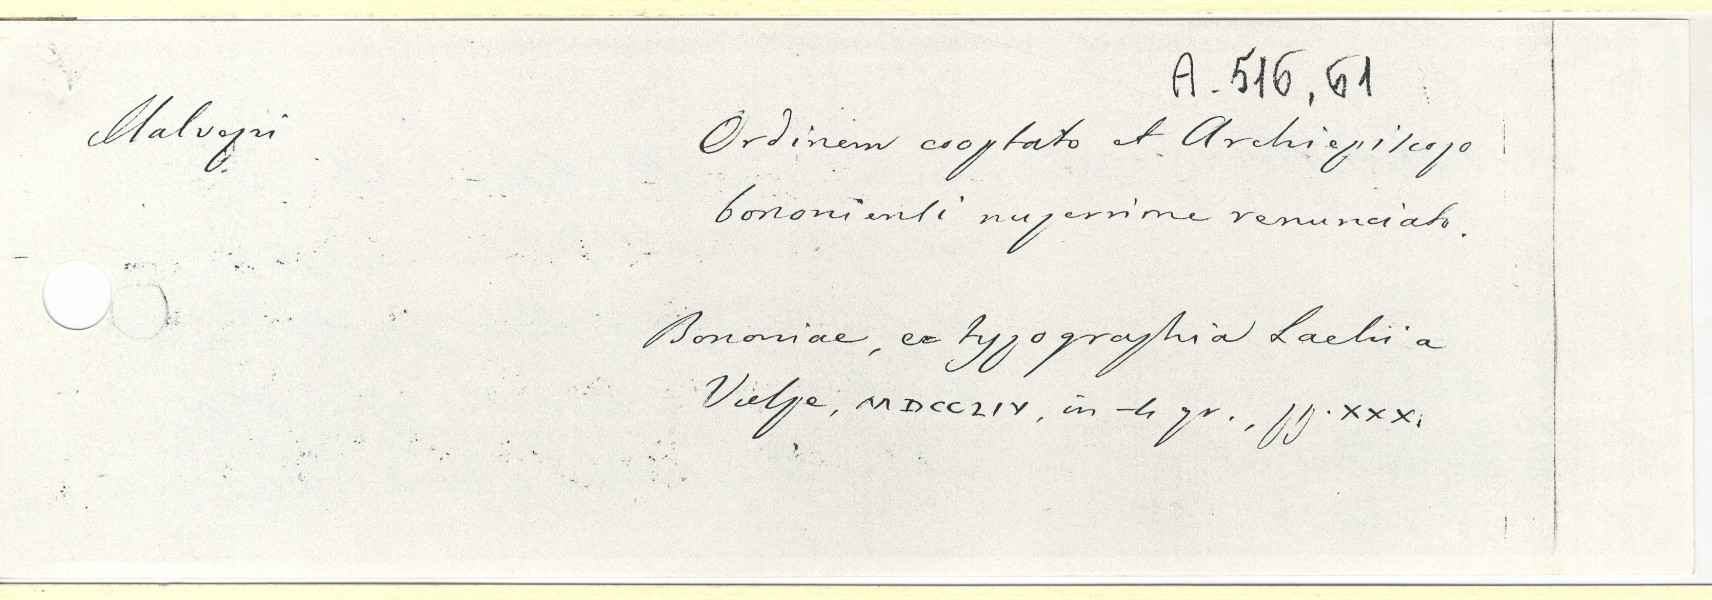 A. 516, 61
Malvezzi
Ordinem cooptato et Archiepiscopo
bononiensi nuperrime renunciato.
Bononiae, ex typographia Laelii a
Vulpe, MDCCLIV, in-4 gr., pp. XXX.